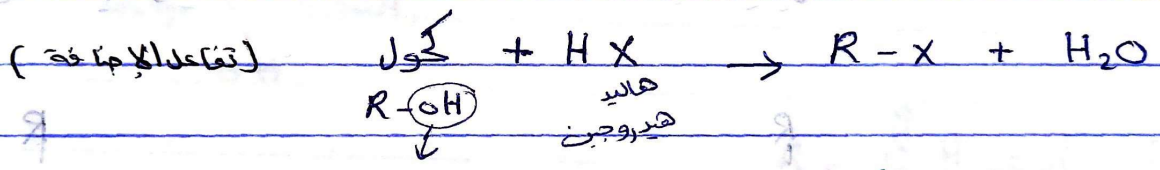 (تفاعل الإضافة) كحول + HX → R-X + H₂O
R-OH هاليد
هيدروجين